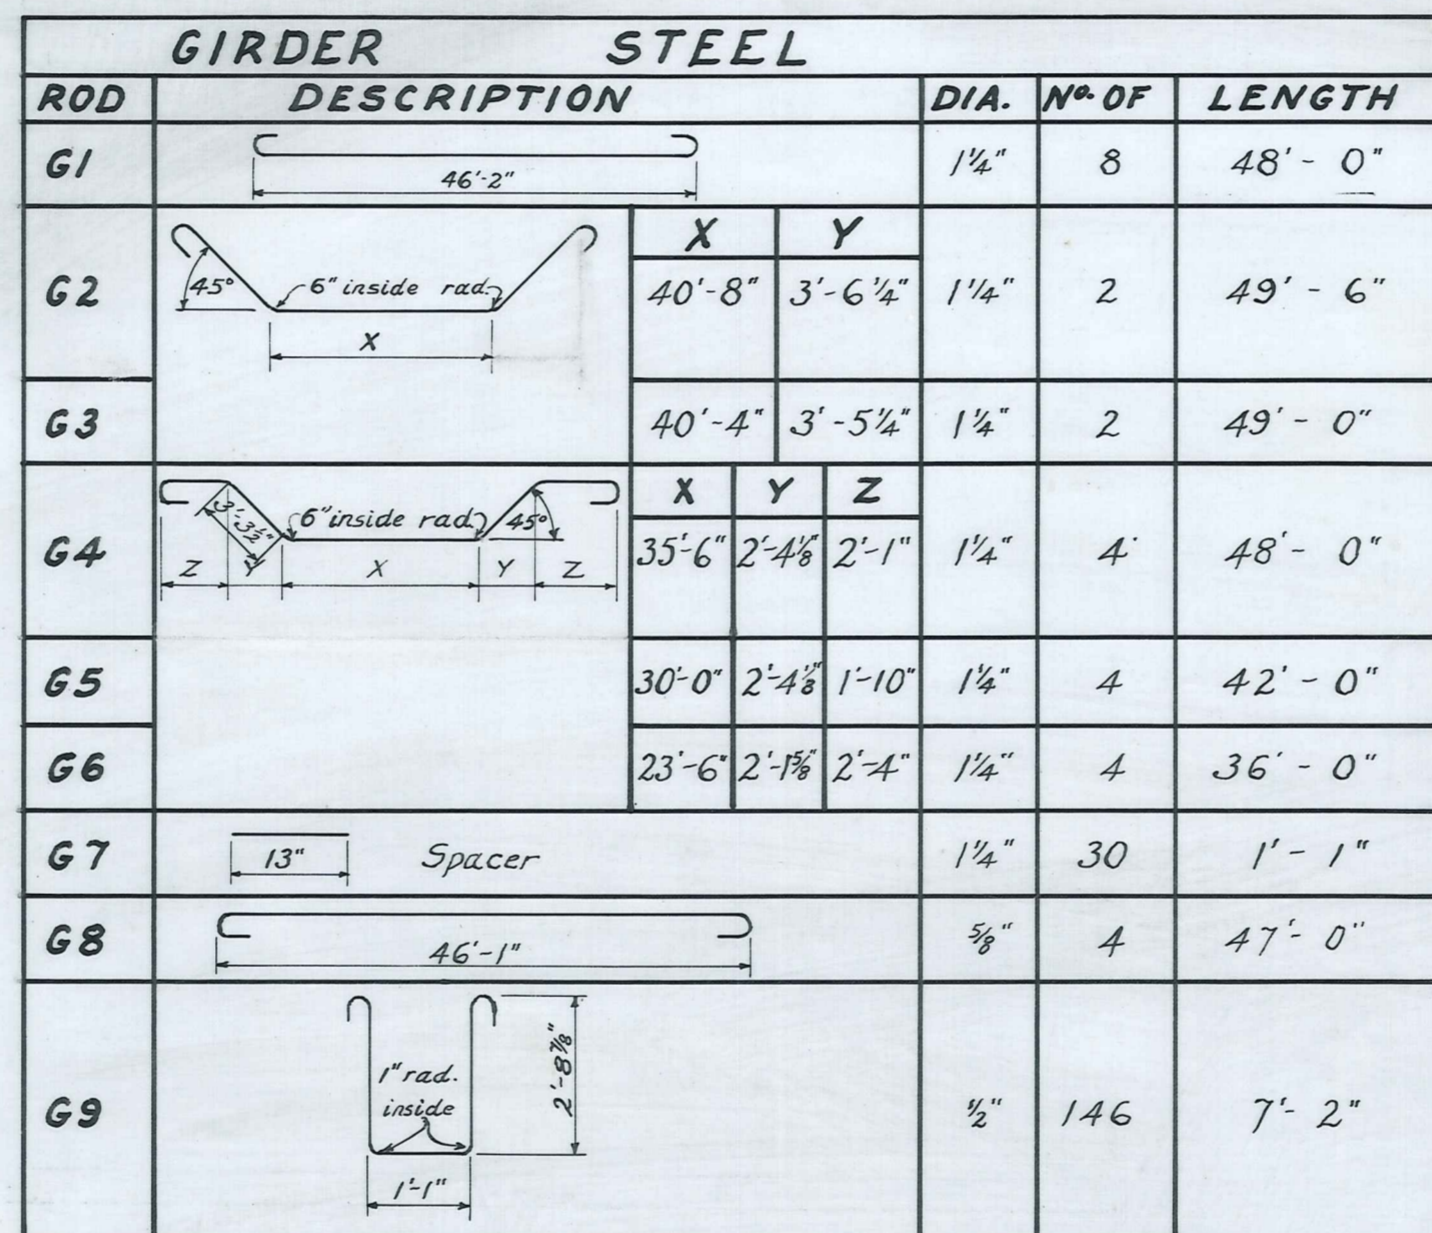 GIRDER STEEL
ROD DESCRIPTION DIA. No. OF LENGTH
G1 46'-2" 1¼" 8 48'- 0"
X Y
G2 45° 6" inside rad. 40'-8" 3'-6¼" 1¼" 2 49' - 6"
X
G3 40'-4" 3'-5¼" 1¼" 2 49'- 0"
X Y Z
3'-3½" 6" inside rad. 45°
G4 35'-6" 2'-4⅛" 2'-1" 1¼" 4 48'- 0"
Z Y X Y Z
G5 30'-0" 2'-4⅛" 1'-10" 1¼" 4 42' - 0"
G6 23'-6" 2'-1⅝" 2'-4" 1¼" 4 36' - 0"
G7 13" Spacer 1¼" 30 1' - 1"
G8 46'-1" ⅝" 4 47'- 0"
2'-8⅞"
1" rad.
inside
G9 ½" 146 7'- 2"
1'-1"